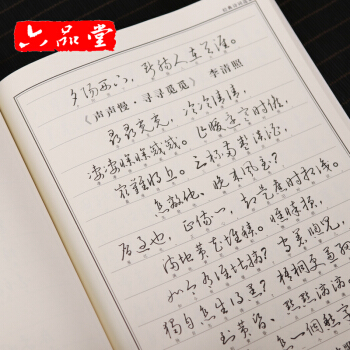 六品堂
夕阳西下,断肠人在天涯。
《声声慢·寻寻觅觅》 李清照
寻寻觅觅,冷冷清清,
凄凄惨惨戚戚。乍暖还寒时候,
最难将息。三杯两盏淡酒,
怎敌他、晚来风急?
雁过也,正伤心,却是旧时相识。
满地黄花堆积。憔悴损,
如今有谁堪摘?守着窗儿,
独自怎生得黑?梧桐更兼细
到黄昏、点点滴滴
一个愁字